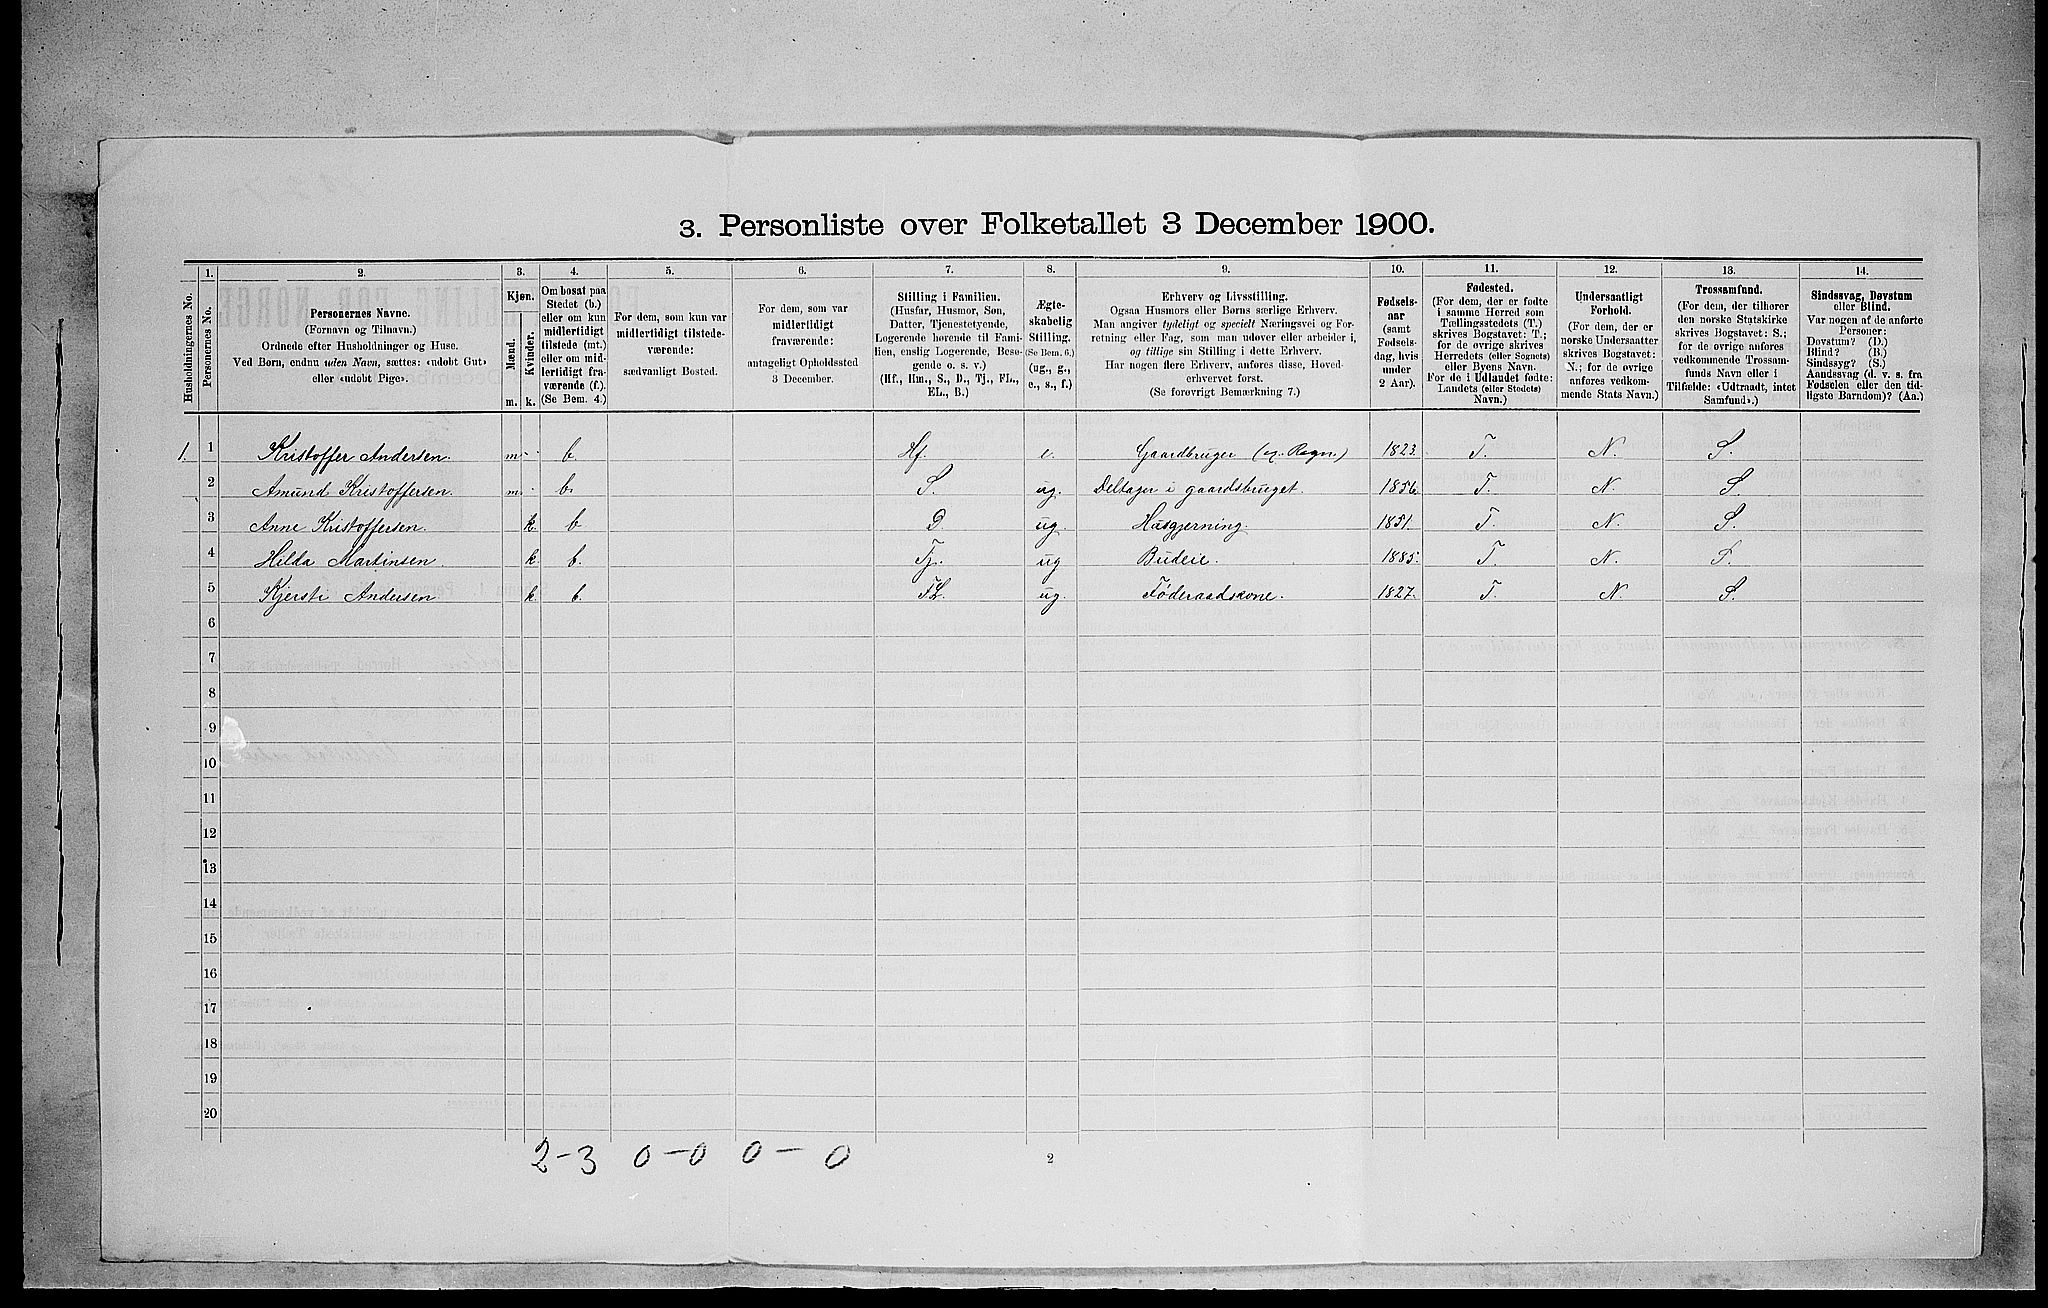 3. Personliste over Folketallet 3 December 1900.
Husholdningernes No.
1. Personernes No.
2. Personernes Navne.
(Fornavn og Tilnavn.)
Ordnede efter Husholdninger og Huse.
Ved Børn, endnu uden Navn, sættes: «udøbt Gut»
eller «udøbt Pige».
3. Kjøn.
Mænd. Kvinder.
m. k.
4.
Om bosat paa
Stedet (b.)
eller om kun
midlertidigt
tilstede (mt.)
eller om mid-
lertidigt fra-
værende (f.).
(Se Bem. 4.)
5.
For dem, som kun var
midlertidigt tilstede-
værende:
sædvanligt Bosted.
6.
For dem, som var
midlertidigt
fraværende:
antageligt Opholdssted
3 December.
7.
Stilling i Familien.
(Husfar, Husmor, Søn,
Datter, Tjenestetyende,
Logerende hørende til Fami-
lien, enslig Logerende, Besø-
gende o. s. v.)
(Hf., Hm., S., D., Tj., FL.,
EL., B.)
8.
Ægte-
skabelig
Stilling.
(Se Bem. 6.)
(ug., g.,
e., s., f.)
9.
Erhverv og Livsstilling.
Ogsaa Husmors eller Børns særlige Erhverv.
Man angiver tydeligt og specielt Næringsvei og For-
retning eller Fag, som man udøver eller arbeider i,
og tillige sin Stilling i dette Erhverv.
Har nogen flere Erhverv, anføres disse, Hoved-
erhvervet først.
(Se forøvrigt Bemærkning 7.)
10.
Fødsels-
aar
(samt
Fødsels-
dag, hvis
under
2 Aar).
11.
Fødested.
(For dem, der er fødte
i samme Herred som
Tællingsstedets (T.)
skrives Bogstavet: T.;
for de øvrige skrives
Herredets (eller Sognets)
eller Byens Navn.
For de i Udlandet fødte:
Landets (eller Stedets)
Navn.)
12.
Undersaatligt
Forhold.
(For dem, der er
norske Undersaatter
skrives Bogstavet:
N.; for de øvrige
anføres vedkom-
mende Stats Navn.)
13.
Trossamfund.
(For dem, der tilhører
den norske Statskirke
skrives Bogstavet: S.;
for de øvrige anføres
vedkommende Trossam-
funds Navn eller i
Tilfælde: «Udtraadt, intet
Samfund».)
14.
Sindssvag, Døvstum
eller Blind.
Var nogen af de anførte
Personer:
Døvstum? (D.)
Blind? (B.)
Sindssyg? (S.)
Aandssvag (d. v. s. fra
Fødselen eller den tid-
ligste Barndom)? (Aa.)
1. 1 Kristoffer Andersen. m. b. Hf. e. Gaardbruger (eg. Regn.) 1823. T. N. S.
2 Amund Kristoffersen. m. b. S. ug. Deltager i gaardsbruget. 1856. T. N. S.
3 Anne Kristoffersen. k. b D. ug. Husgjerning. 1851. T. N. S.
4 Hilda Martinsen. k. b. Tj. ug Budeie. 1885. T. N. S.
5 Kjersti Andersen k. b. FL. ug. Føderaadskone. 1827. T. N. S.
6
7
8
9
10
11
12
13
14
15
16
17
18
19
20
2-3 0-0 0-0
2